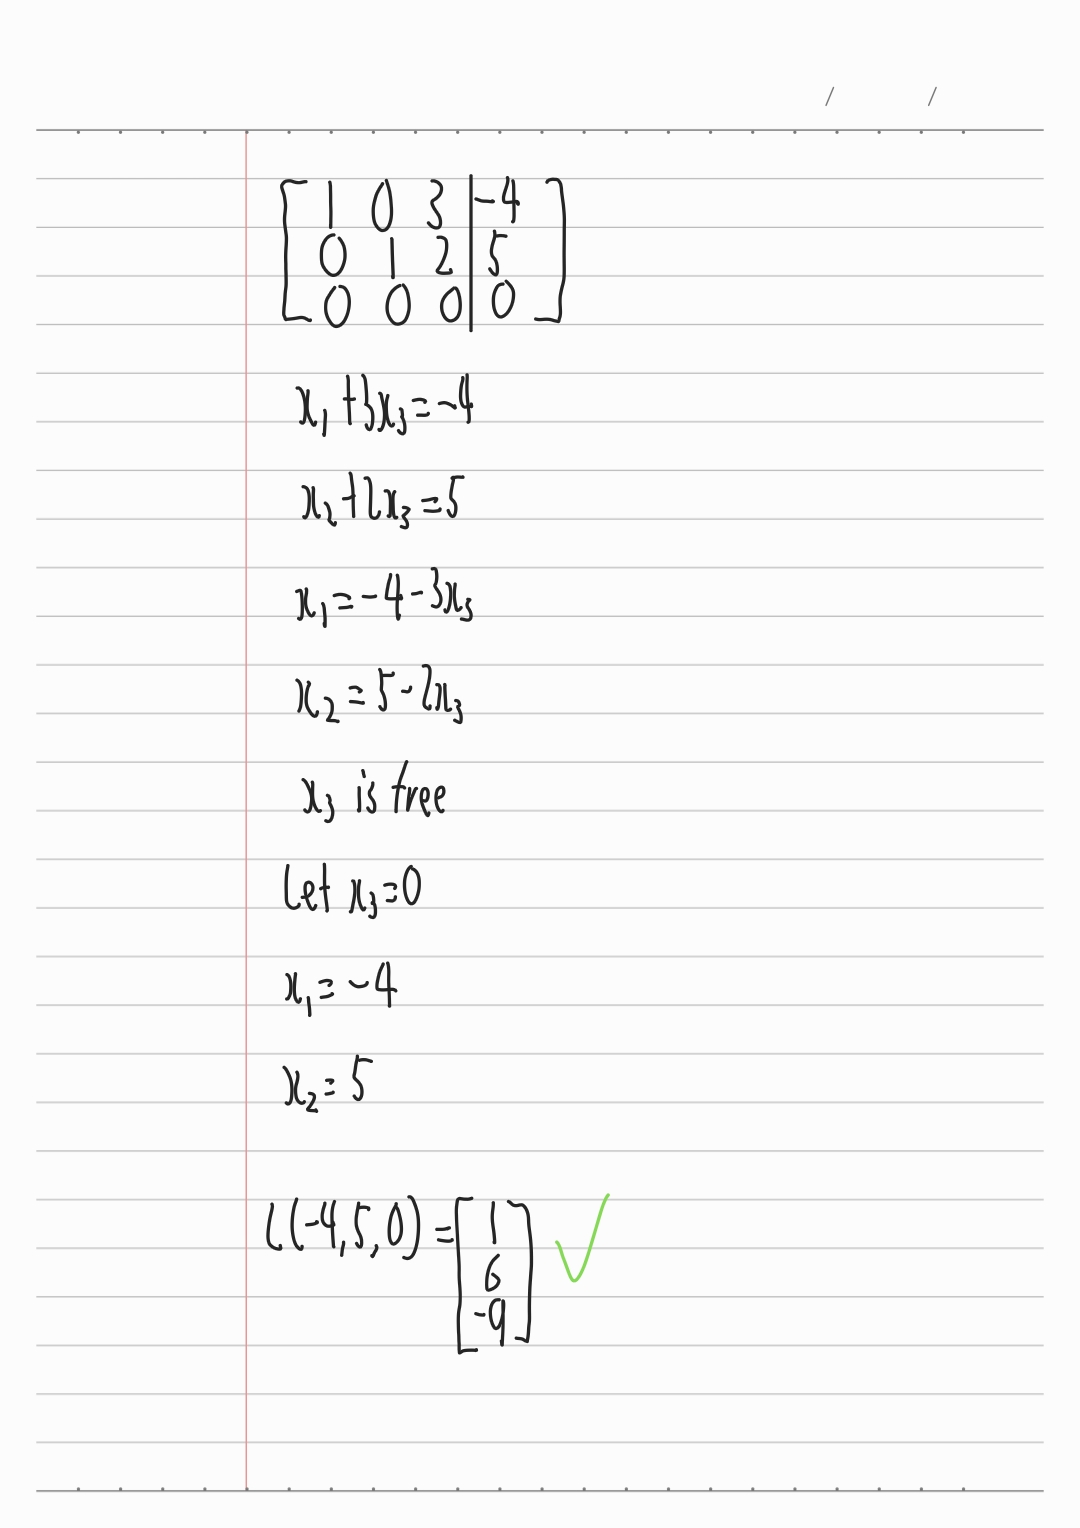 / /
[ 1 0 3 | -4 ]
[ 0 1 2 | 5 ]
[ 0 0 0 | 0 ]
x₁ + 3x₃ = -4
x₂ + 2x₃ = 5
x₁ = -4 - 3x₃
x₂ = 5 - 2x₃
x₃ is free
Let x₃ = 0
x₁ = -4
x₂ = 5
L(-4, 5, 0) = [ 1
6
-9 ] ✓